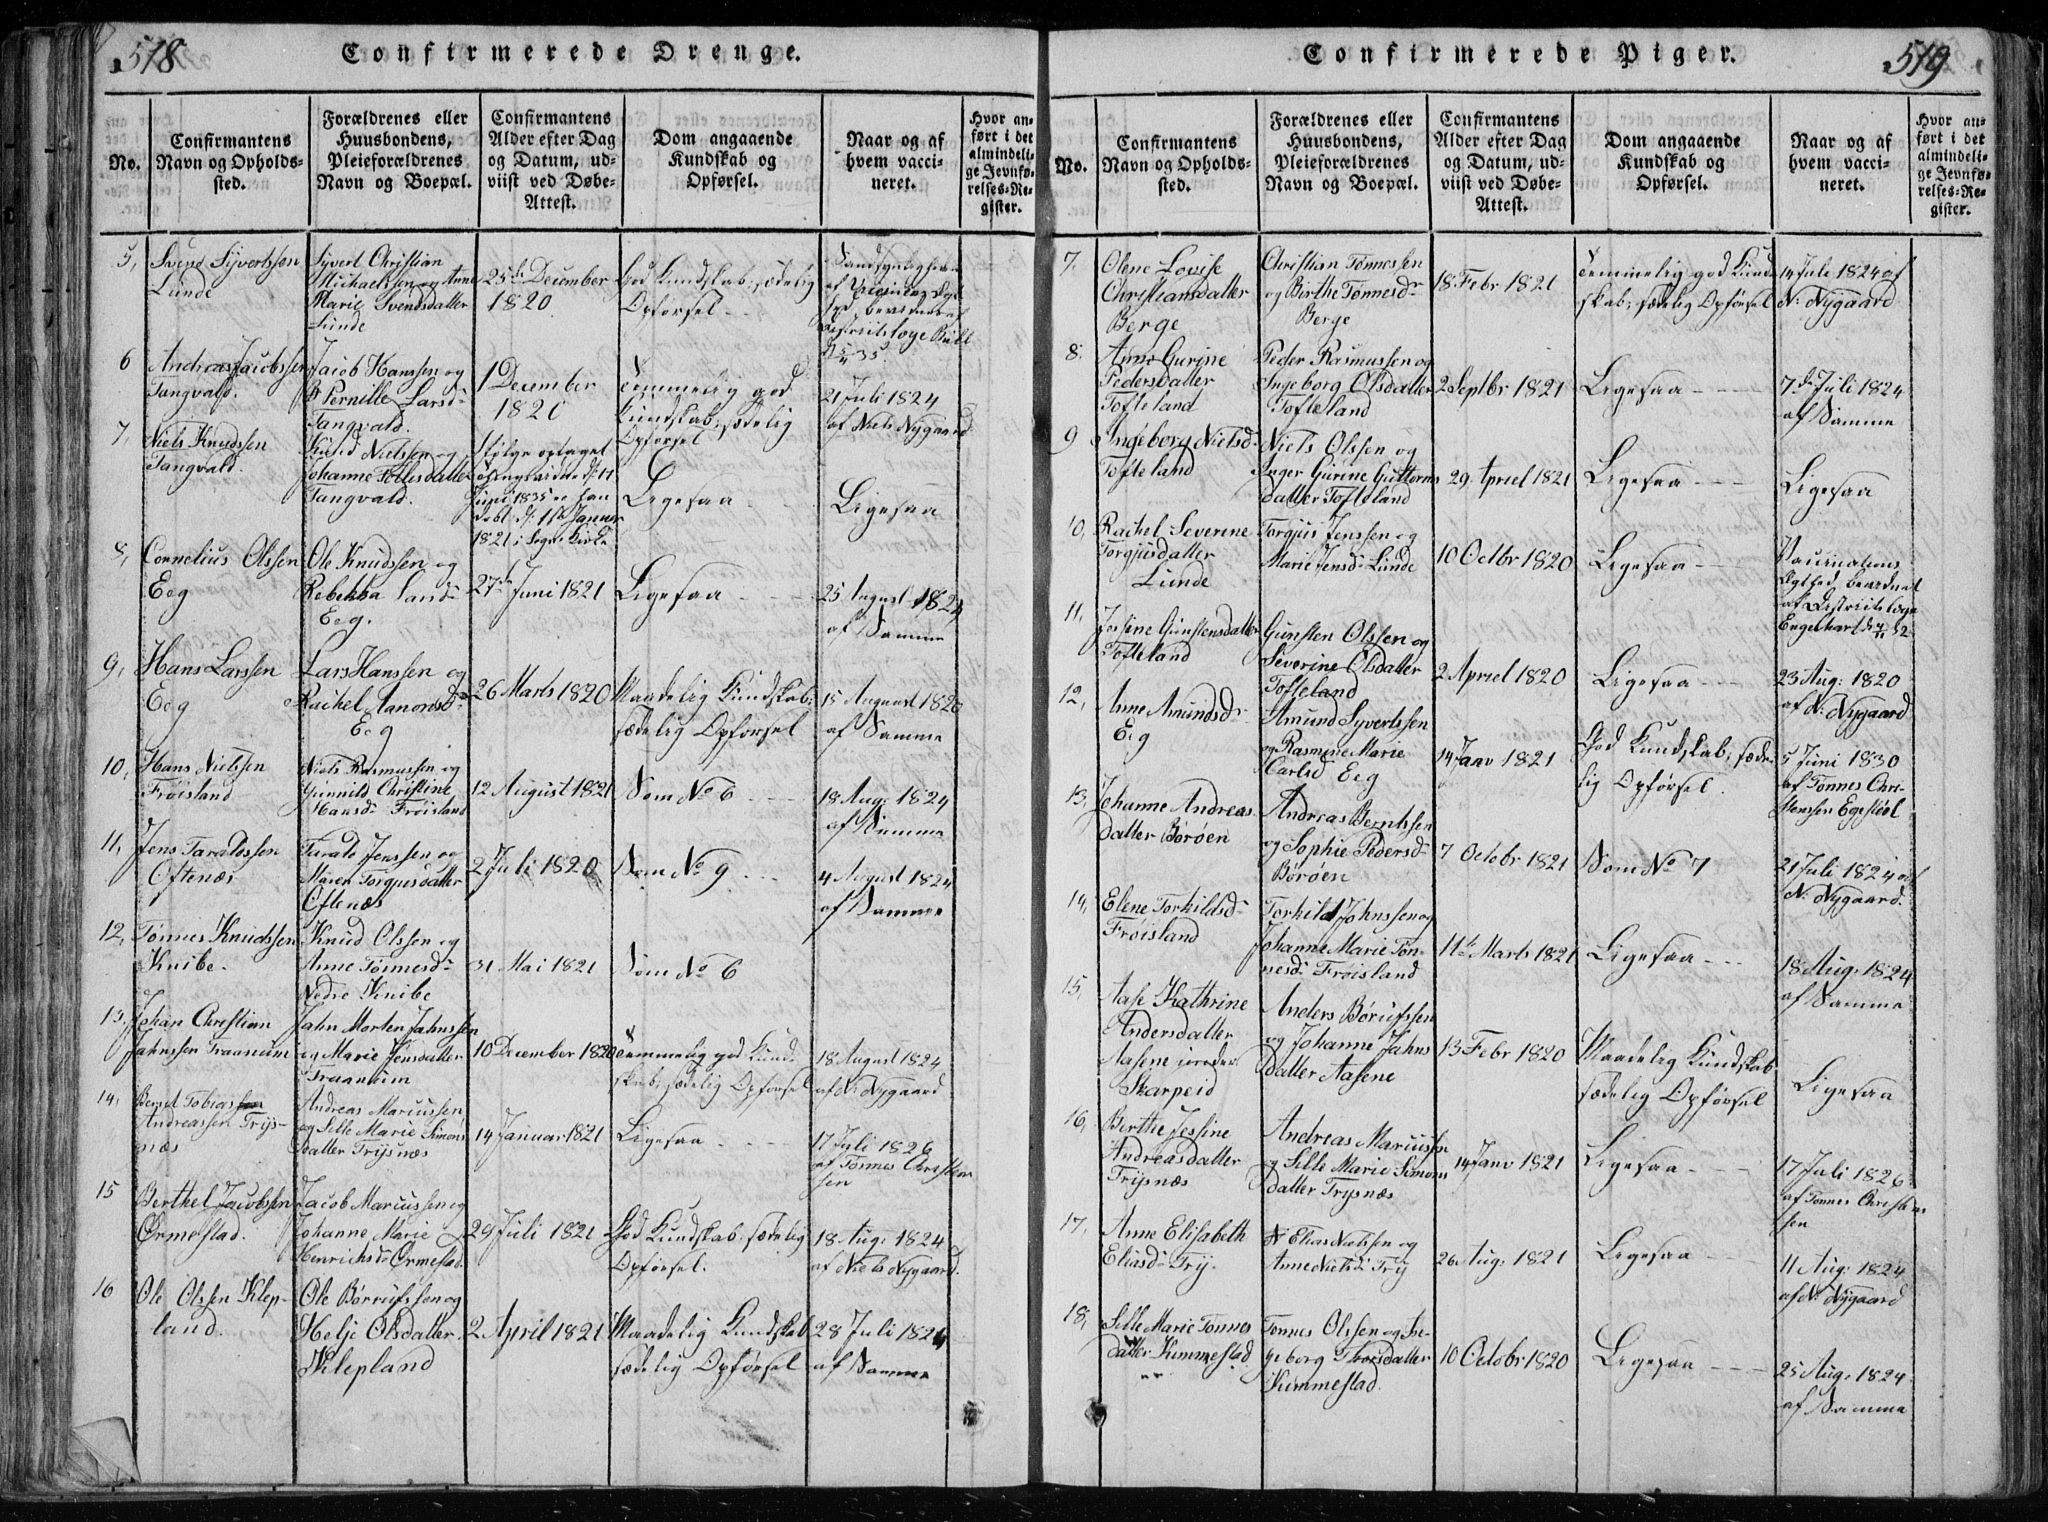 518
Confirmerede Drenge.
No.
Confirmantens
Navn og Opholds-
sted.
Forældrenes eller
Huusbondens,
Pleieforældrenes
Navn og Boepæl.
Confirmantens
Alder efter Dag
og Datum, ud-
viist ved Døbe-
Attest.
Dom angaaende
Kundskab og
Opførsel.
Naar og af
hvem vacci-
neret.
Hvor an-
ført i det
almindeli-
ge Jevnfø-
relses-Re-
gister.
5,
Svend Syvertssen
Lunde
Syvert Christian
Michaelssen og Anne
Marie Svendsdatter
Lunde
25de December
1820
God Kundskab; sædelig
Opførsel
6
Andreas Jacobssen
Tangvald.
Jacob Hanssen og
Pernille Larsd:
Tangvald.
1 December
1820
Temmelig god
Kundskab; sædelig
Opførsel
21 Juli 1824
af Niels Nygaard
7,
Niels Knudssen
Tangvald.
Knud Nielssen og
Johanne Tollisdatter
Tangvald.
Ifølge optaget
Juni 1835 er han
døbt d: 1ste Januar
1821 i Sogne Kirke
Ligesaa
Ligesaa
8,
Cornelius Olssen
Eeg
Ole Knudssen og
Rebekka Larsd:
Eeg.
27de Juni 1821
Ligesaa
25 August 1824
af Samme
9,
Hans Larssen
Eeg
Lars Hanssen og
Rachel Aanonsd:
Eeg
26 Marts 1820
Maadelig Kundskab;
sædelig Opførsel
15 August 1820
af Samme
10,
Hans Nielssen
Frøisland
Niels Rasmussen og
Gunnild Christine
Hansd: Frøisland
12 August 1821
Som No 6
18 Aug: 1824
af Samme
11,
Jens Taraldssen
Oftenæs
Tarald Jenssen og
Maren Torgusdatter
Oftenæs
2 Juli 1820
Som No 9
4 August 1824
af Samme
12,
Tønnes Knudssen
Knibe.
Knud Olssen og
Anne Tønnesd:
Nedre Knibe
31 Mai 1821
Som No 6
13,
Johan Christian
Jahnssen Fraanum
Jahn Morten Jahnssen
og Marie Jensdatter
Fraanum
10 December 1820
Temmelig god Kund-
skab; sædelig Opførsel
18 August 1824
af N: Nygaard
14,
Bernt Tobias
Andreassen Trys-
næs
Andreas Mariussen
og Sille Marie Simons
datter Trysnæs
14 Januar 1821
Ligesaa
17 Juli 1826
af Tønnes Christen
sen
15
Berthel Jacobssen
Ormestad.
Jacob Mariussen og
Johanne Marie
Henrichsd: Ormestad.
29 Juli 1821
God Kundskab; sædelig
Opførsel.
18 Aug: 1824
af Niels Nygaard.
16
Ole Olssen Klep-
land.
Ole Børrufssen og
Helje Olsdatter.
Klepland
2 April 1821
Maadelig Kundskab
sædelig Opførsel
28 Juli 1824
af Samme
519
Confirmerede Piger.
No.
Confirmantens
Navn og Opholds-
sted.
Forældrenes eller
Huusbondens,
Pleieforældrenes
Navn og Boepæl.
Confirmantens
Alder efter Dag
og Datum, ud-
viist ved Døbe-
Attest.
Dom angaaende
Kundskab og
Opførsel.
Naar og af
hvem vacci-
neret.
Hvor an-
ført i det
almindeli-
ge Jevnfø-
relses-Re-
gister.
7.
Olene Lovise
Christiansdatter
Berge
Christian Tønnessen
og Birthe Tønnesd:
Berge
18 Febr 1821
Temmelig god Kund-
skab; sædelig Opførsel
14 Juli 1824 af
N: Nygaard
8.
Anne Gurine
Pedersdatter
Tofteland
Peder Rasmussen og
Ingeborg Olsdatter
Tofteland
2 Septbr 1821
Ligesaa
7de Juli 1824
af Samme
9
Ingeborg Nielsd:
Tofteland
Niels Olssen og
Inger Gurine Guttorms
datter Tofteland
29 Apriel 1821
Ligesaa
Ligesaa
10,
Rachel Severine
Torgusdatter
Lunde
Torguus Jenssen og
Marie Jensd: Lunde
10 Octbr 1820
Ligesaa
Vaccinations
11,
Jessine Gunstensdatter
Tofteland
Gunsten Olssen og
Severine Olsdatter
Tofteland
2 Apriel 1820
Ligesaa
23 Aug: 1820
af N: Nygaard
12,
Anne Amundsd:
Eeg
Amund Syvertssen
og Rasmine Marie
Carlsd: Eeg
14 Janv 1821
God Kundskab; sæde-
lig Opførsel.
5 Juni 1830
af Tønnes Chri-
stensen Egestøl
13,
Johanne Andreas
datter Børøen
Andreas Berntssen
og Sophie Pedersd:
Børøen
7 Octobr 1821
Som No 7
21 Juli 1824 af
N: Nygaard
14,
Elene Torkildsd:
Frøisland
Torkild Johnssen og
Johanne Marie Tøn-
nesd: Frøisland
11te Marts 1821
Ligesaa
18 Aug: 1824
af Samme
15,
Aase Kathrine
Andersdatter
Aasene
Skarpeid
Anders Børufssen
og Johanne Jahns
datter Aasene
13 Febr 1820
Maadelig Kundskab
sædelig Opførsel
Ligesaa
16,
Berthe Jessine
Andreasdatter
Trysnæs
Andreas Mariussen
og Sille Marie Simons
datter Trysnæs
14 Janv 1821
Ligesaa
17 Juli 1826
af Tønnes Christen
sen
17,
Anne Elisabeth
Eliasd: Try.
Elias Nielssen og
Anne Nielsd: Try
26 Aug: 1821
Ligesaa
11 Aug: 1824
af N: Nygaard
18,
Sille Marie Tønnes
datter Kummestad
Tønnes Olssen og In-
geborg Thorsdatter
Kummestad.
10 Octobr 1820
Ligesaa
25 Aug: 1824
af Samme